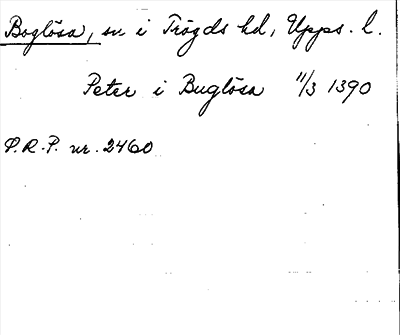 Boglösa, sn i Trögds hd, Upps. l.
Peter i Buglösa 11/3 1390
P.R.P. nr. 2460